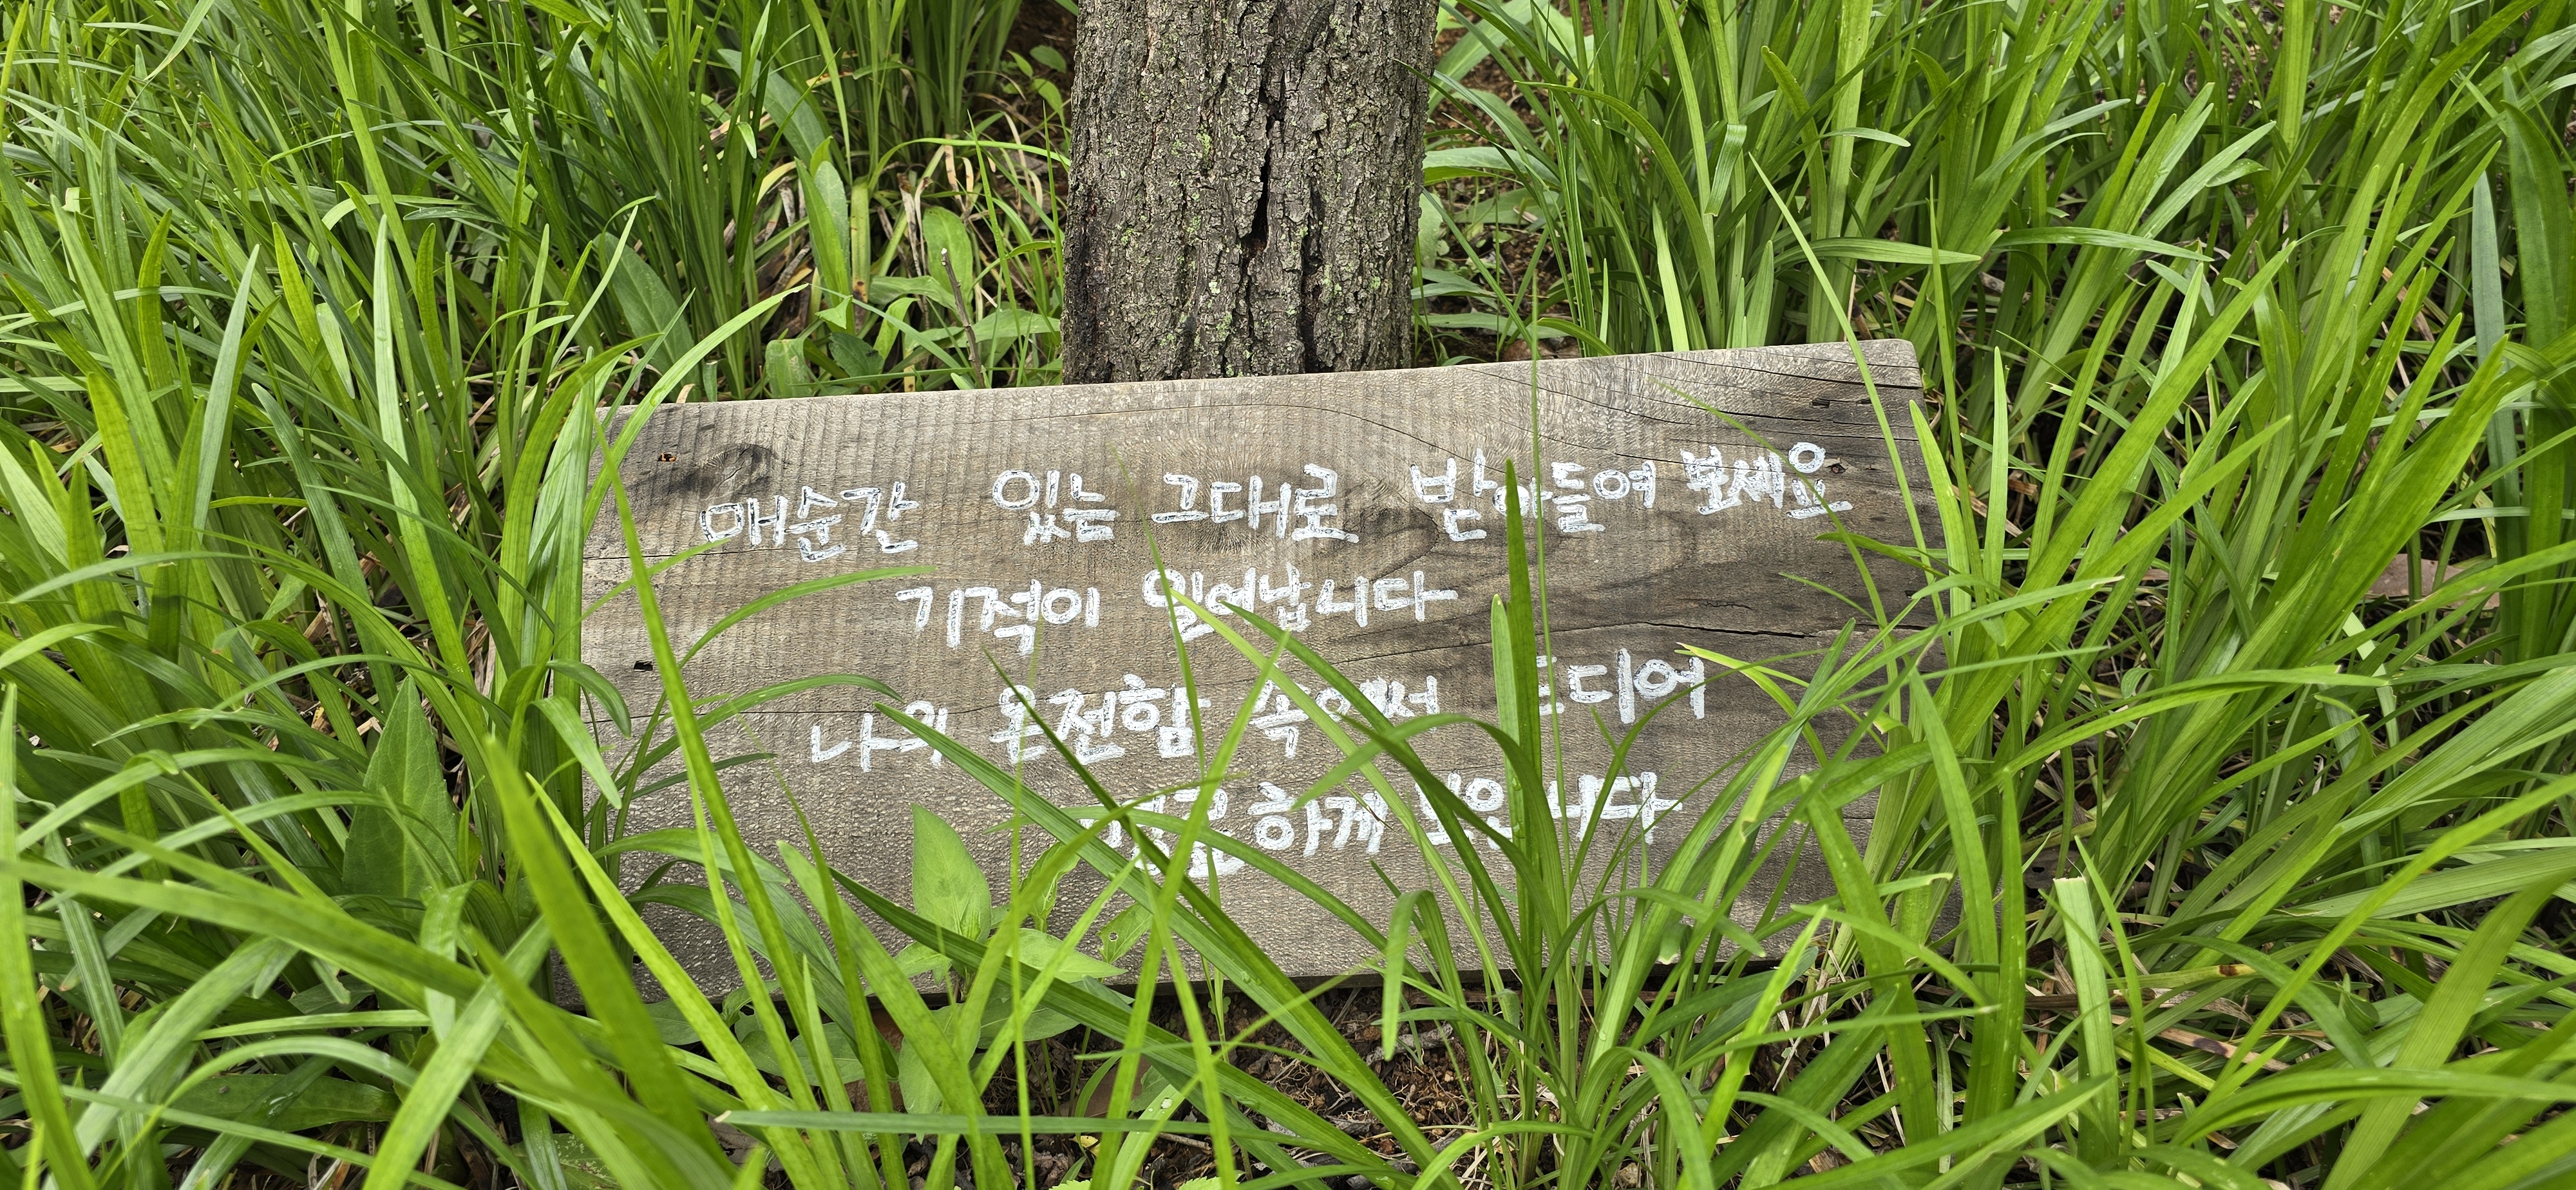 매순간 있는 그대로 받아들여 보세요
기적이 일어납니다
나의 온전함 속에서 드디어
하게